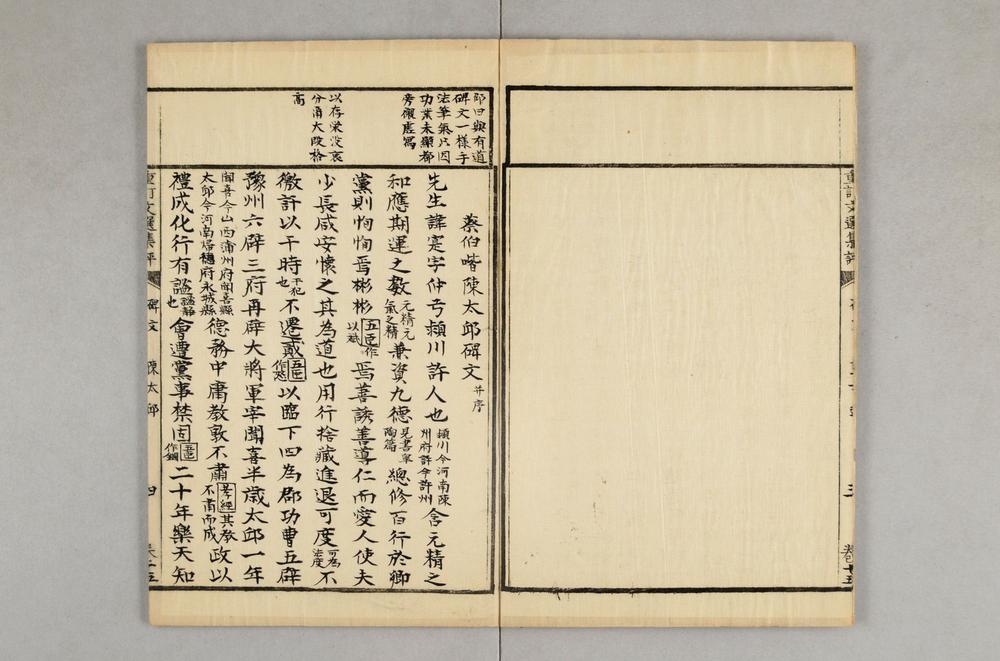 重訂文選集評
三
卷十五
邵曰與有道
碑文一樣手
法筆氣只因
功業未顯都
旁襯虛寫
以存榮沒哀
分兩大段格
高
蔡伯喈陳太邱碑文并序
先生諱寔字仲弓潁川許人也潁川今河南陳州府許今許州含元精之
和應期運之數元精元氣之精兼資九德見書皋陶篇總修百行於鄉
黨則恂恂焉彬彬五臣作以斌焉善誘善導仁而愛人使夫
少長咸安懷之其為道也用行捨藏進退可度可為法度不
徼訐以干時干犯也不遷貳五臣作怒以臨下四為郡功曹五辟
豫州六辟三府再辟大將軍宰聞喜半歲太邱一年
聞喜今山西蒲州府聞喜縣太邱今河南歸德府永城縣德務中庸教敦不肅孝經其教不肅而成政以
禮成化行有謐謐靜也會遭黨事禁固五臣作錮二十年樂天知
重訂文選集評
碑文
陳太邱
四
卷十五